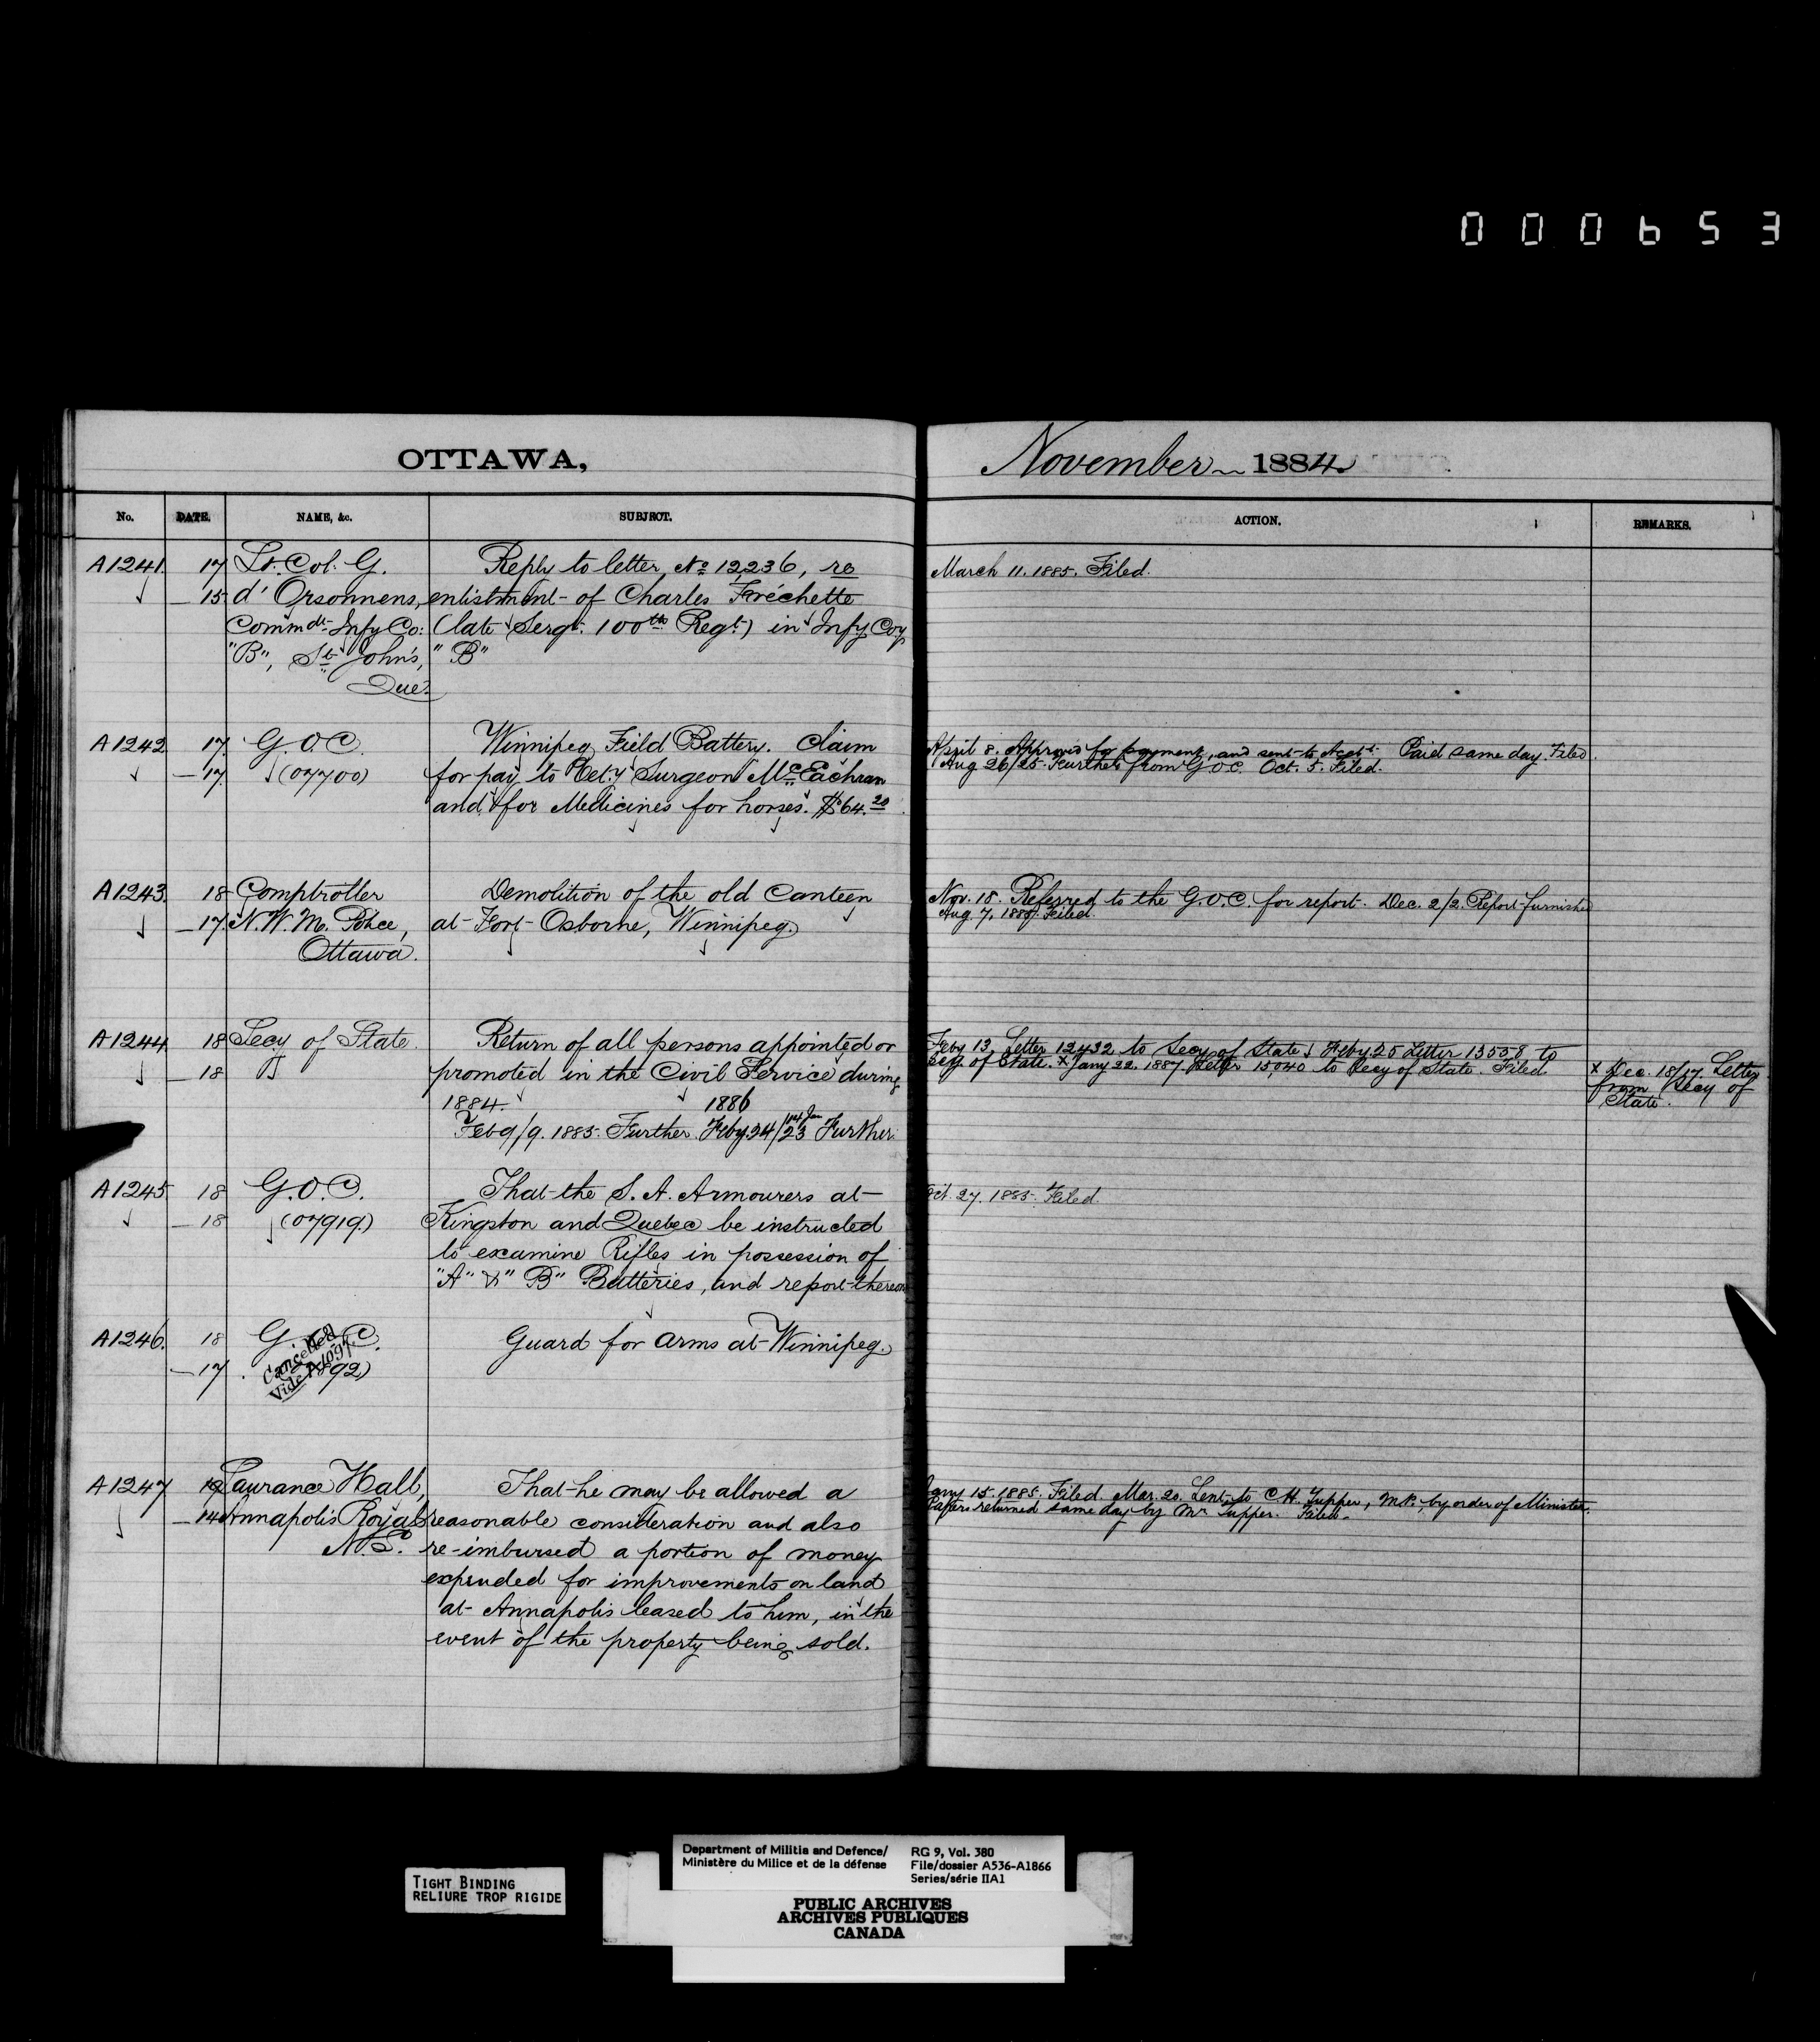 000653
OTTAWA,
November 1884
No. DATE. NAME, &c. SUBJECT. ACTION. REMARKS.
A1241. 17 Lt. Col. G. Reply to letter No 12,236, re March 11. 1885. Filed.
15 d'Orsonnens, enlistment of Charles Fréchette
Commdt. Infy Co: (late Sergt. 100th Regt.) in Infy Coy
"B", St. John's, "B"
Que.
A1242 17. G.O.C. Winnipeg Field Battery. Claim April 8. Approved for payment, and sent to Acctt. Paid same day. Filed.
17. (07700) for pay to Vet.y Surgeon McEachran Aug 26/25. Further from G.O.C. Oct. 5. Filed.
and for Medicines for horses. $64.20
A1243. 18 Comptroller Demolition of the old Canteen Nov. 18. Referred to the G.O.C. for report. Dec. 2/2. Report furnished
17 N.W.M. Police, at Fort Osborne, Winnipeg. Aug 7, Filed.
Ottawa.
A1244 18 Secy of State. Return of all persons appointed or Feby 13. Letter 12432 to Secy of State. Feby 25 Letter 13558 to
18 " promoted in the Civil Service during Secy. of State. x Jany 22. 1887 Letter 15,040 to Secy of State. Filed x Dec. 18/17 Letter
1884. 1886 from Secy of
Feb 9/9. 1885. Further. Feby 24/23 Further. State.
A1245 18 G.O.C. That the S.A. Armourers at Oct. 27. 1885. Filed.
18 (07919.) Kingston and Quebec be instructed
to examine Rifles in possession of
"A" & "B" Batteries, and report thereon
A1246. 18 G.O.C. Guard for arms at Winnipeg.
17. Cancelled
Vide A1097.
A1247 19 Laurance Hall, That he may be allowed a Jany 15. 1885. Filed. Mar. 20. Lent to C.H. Tupper, M.P., by order of Minister.
14 Annapolis Royal reasonable consideration and also Papers returned same day by Mr Tupper. Filed.
N.S. re-imbursed a portion of money
expended for improvements on land
at Annapolis leased to him, in the
event of the property being sold.
TIGHT BINDING
RELIURE TROP RIGIDE
Department of Militia and Defence/ RG 9, Vol. 380
Ministère du Milice et de la défense File/dossier A536-A1866
Series/série IIA1
PUBLIC ARCHIVES
ARCHIVES PUBLIQUES
CANADA